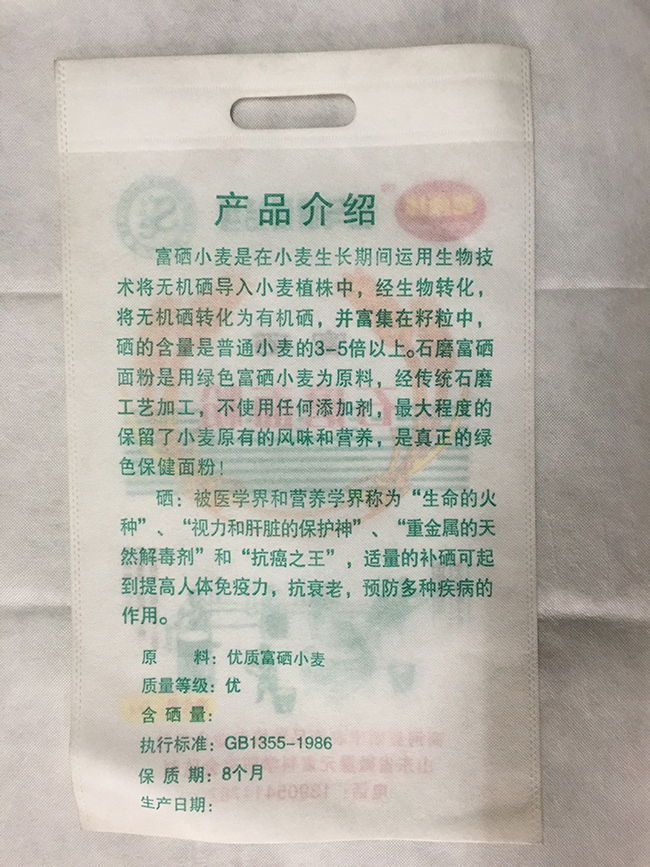 产品介绍
富硒小麦是在小麦生长期间运用生物技
术将无机硒导入小麦植株中，经生物转化，
将无机硒转化为有机硒，并富集在籽粒中，
硒的含量是普通小麦的3-5倍以上。石磨富硒
面粉是用绿色富硒小麦为原料，经传统石磨
工艺加工，不使用任何添加剂，最大程度的
保留了小麦原有的风味和营养，是真正的绿
色保健面粉！
硒：被医学界和营养学界称为“生命的火
种”、“视力和肝脏的保护神”、“重金属的天
然解毒剂”和“抗癌之王”，适量的补硒可起
到提高人体免疫力，抗衰老，预防多种疾病的
作用。
原　　料：优质富硒小麦
质量等级：优
含 硒 量：
执行标准：GB1355-1986
保 质 期：8个月
生产日期：